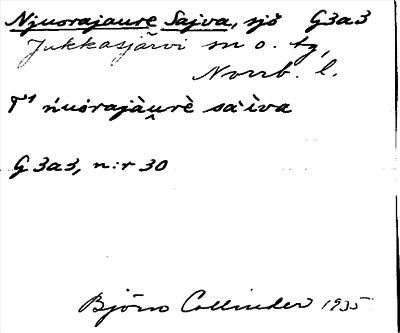 Njuorajaure Sajva, sjö G3a3
Jukkasjärvi sn o. tg,
Norrb. l.
T¹ ńuórajàu̯rè sa͕ìva
G 3a3, n:r 30
Björn Collinder 1935